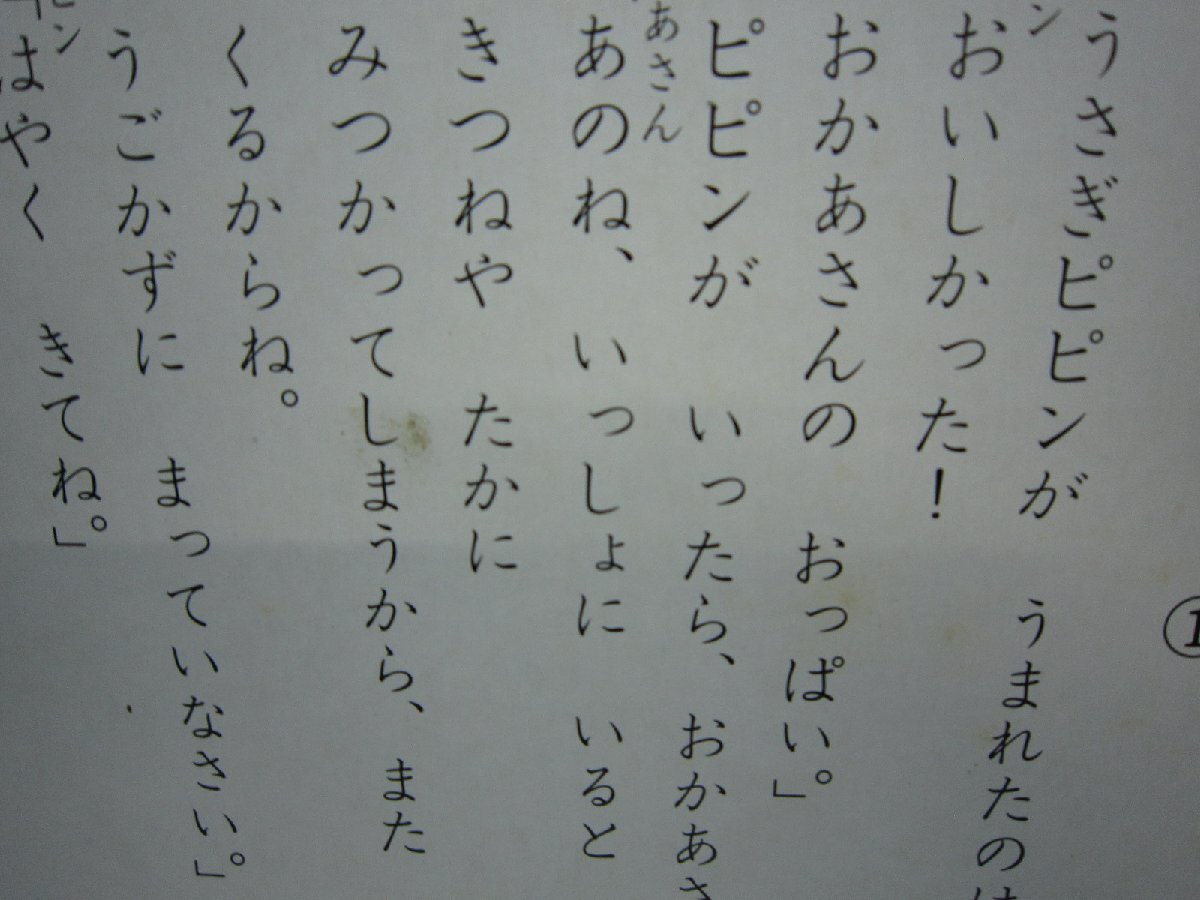 ①
うさぎピピンが　うまれたのは
ン
おいしかった！
おかあさんの　おっぱい」。
ピピンが　いったら、おかあさ
あさん
あのね、いっしょに　いると
きつねや　たかに
みつかってしまうから、また
くるからね。
うごかずに　まっていなさい」。
ピン
はやく　きてね」。